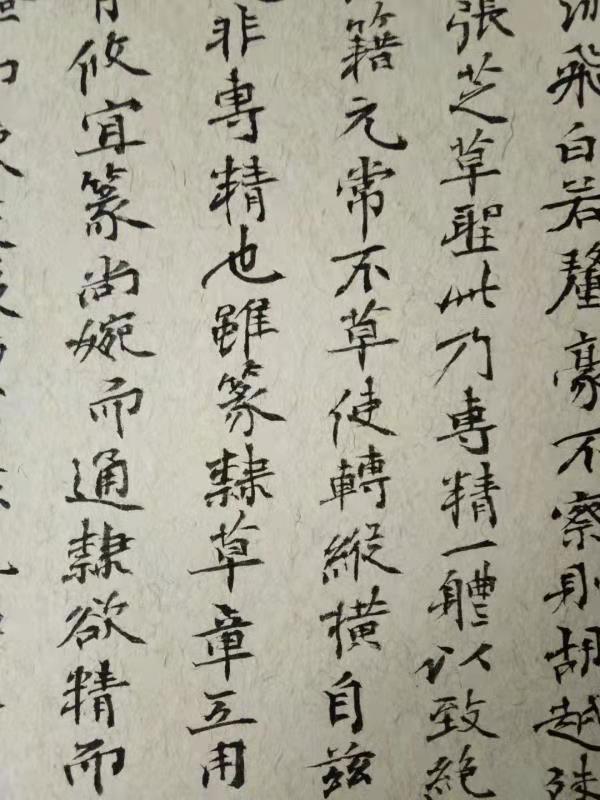 飛白若釐豪不察則胡越殊
張芝草聖此乃專精一體以致絕
籍元常不草使轉縱橫自茲
非專精也雖篆隸草章互用
攸宜篆尚婉而通隸欲精而